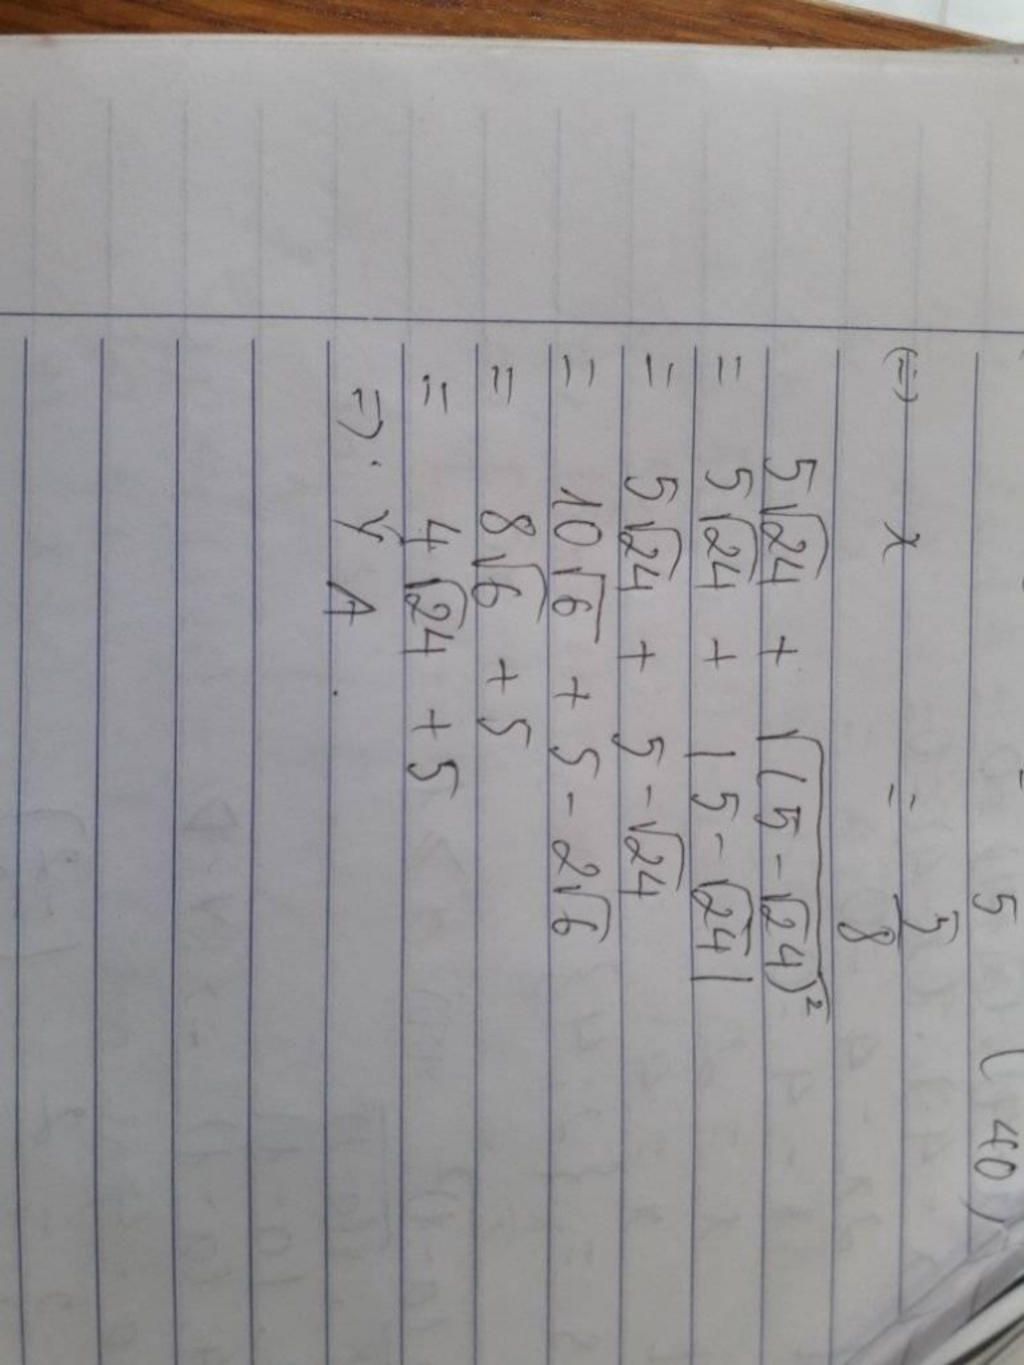 5 (40)
(=) x = 3/8
5√24 + √(5-√24)²
= 5√24 + |5-√24|
= 5√24 + 5-√24
= 10√6 + 5-2√6
= 8√6 + 5
= 4√24 + 5
=> Ý A